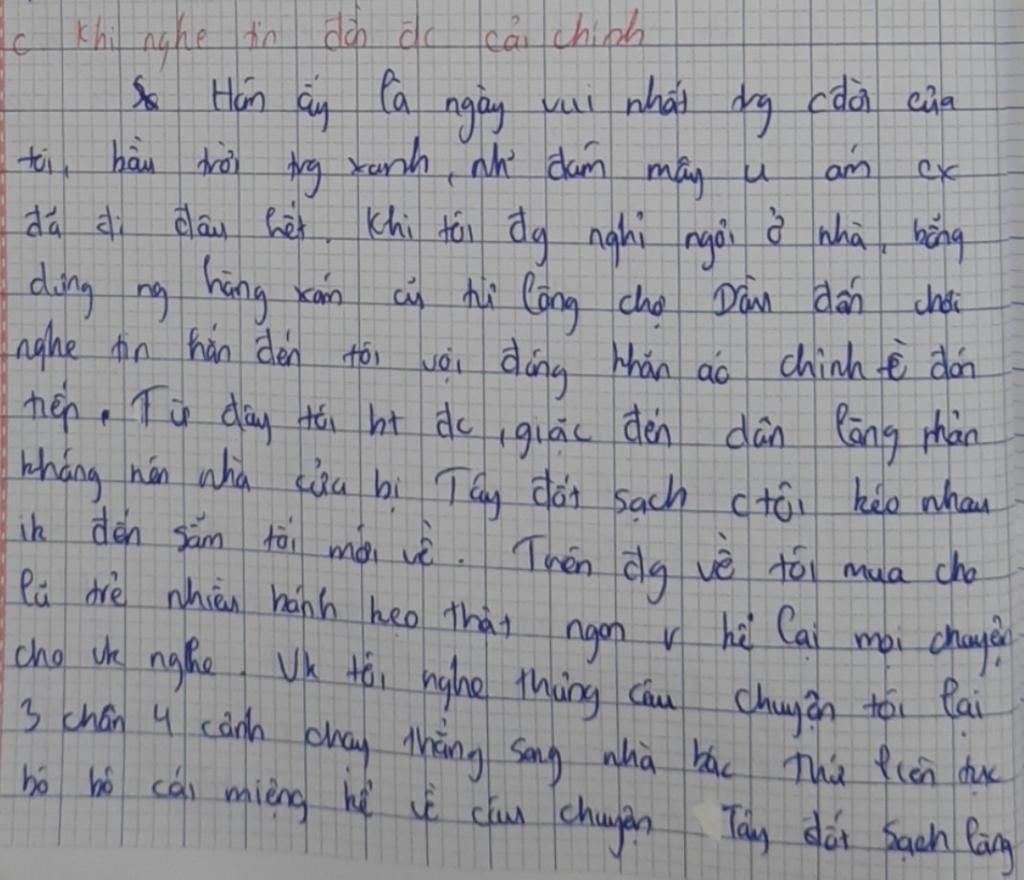 c Khi nghe tin đồn đc cải chính
Hôm ấy là ngày vui nhất trg cđời của
tôi, bầu trời trg xanh, nh~ đám mây u ám cx
đã đi đâu hết. Khi tôi đg nghỉ ngơi ở nhà, bỗng
dưng ng hàng xóm cũ từ làng chợ Dầu đến chơi
nghe tin hắn đến tôi vội đóng khăn áo chỉnh tề đón
tiếp. Từ đây tôi bt đc, giặc đến dân làng phản
kháng nên nhà cửa bị Tây đốt sạch ctôi kéo nhau
ik đến sẩm tối mới về. Trên đg về tôi mua cho
lũ trẻ nhiều bánh kẹo thật ngon v kể lại mọi chuyện
cho vk nghe. Vk tôi nghe thủng câu chuyện tôi lại
3 chân 4 cẳng chạy thẳng sang nhà bác Thứ
bô bô cái miệng kể về câu chuyện Tây đốt sạch làng